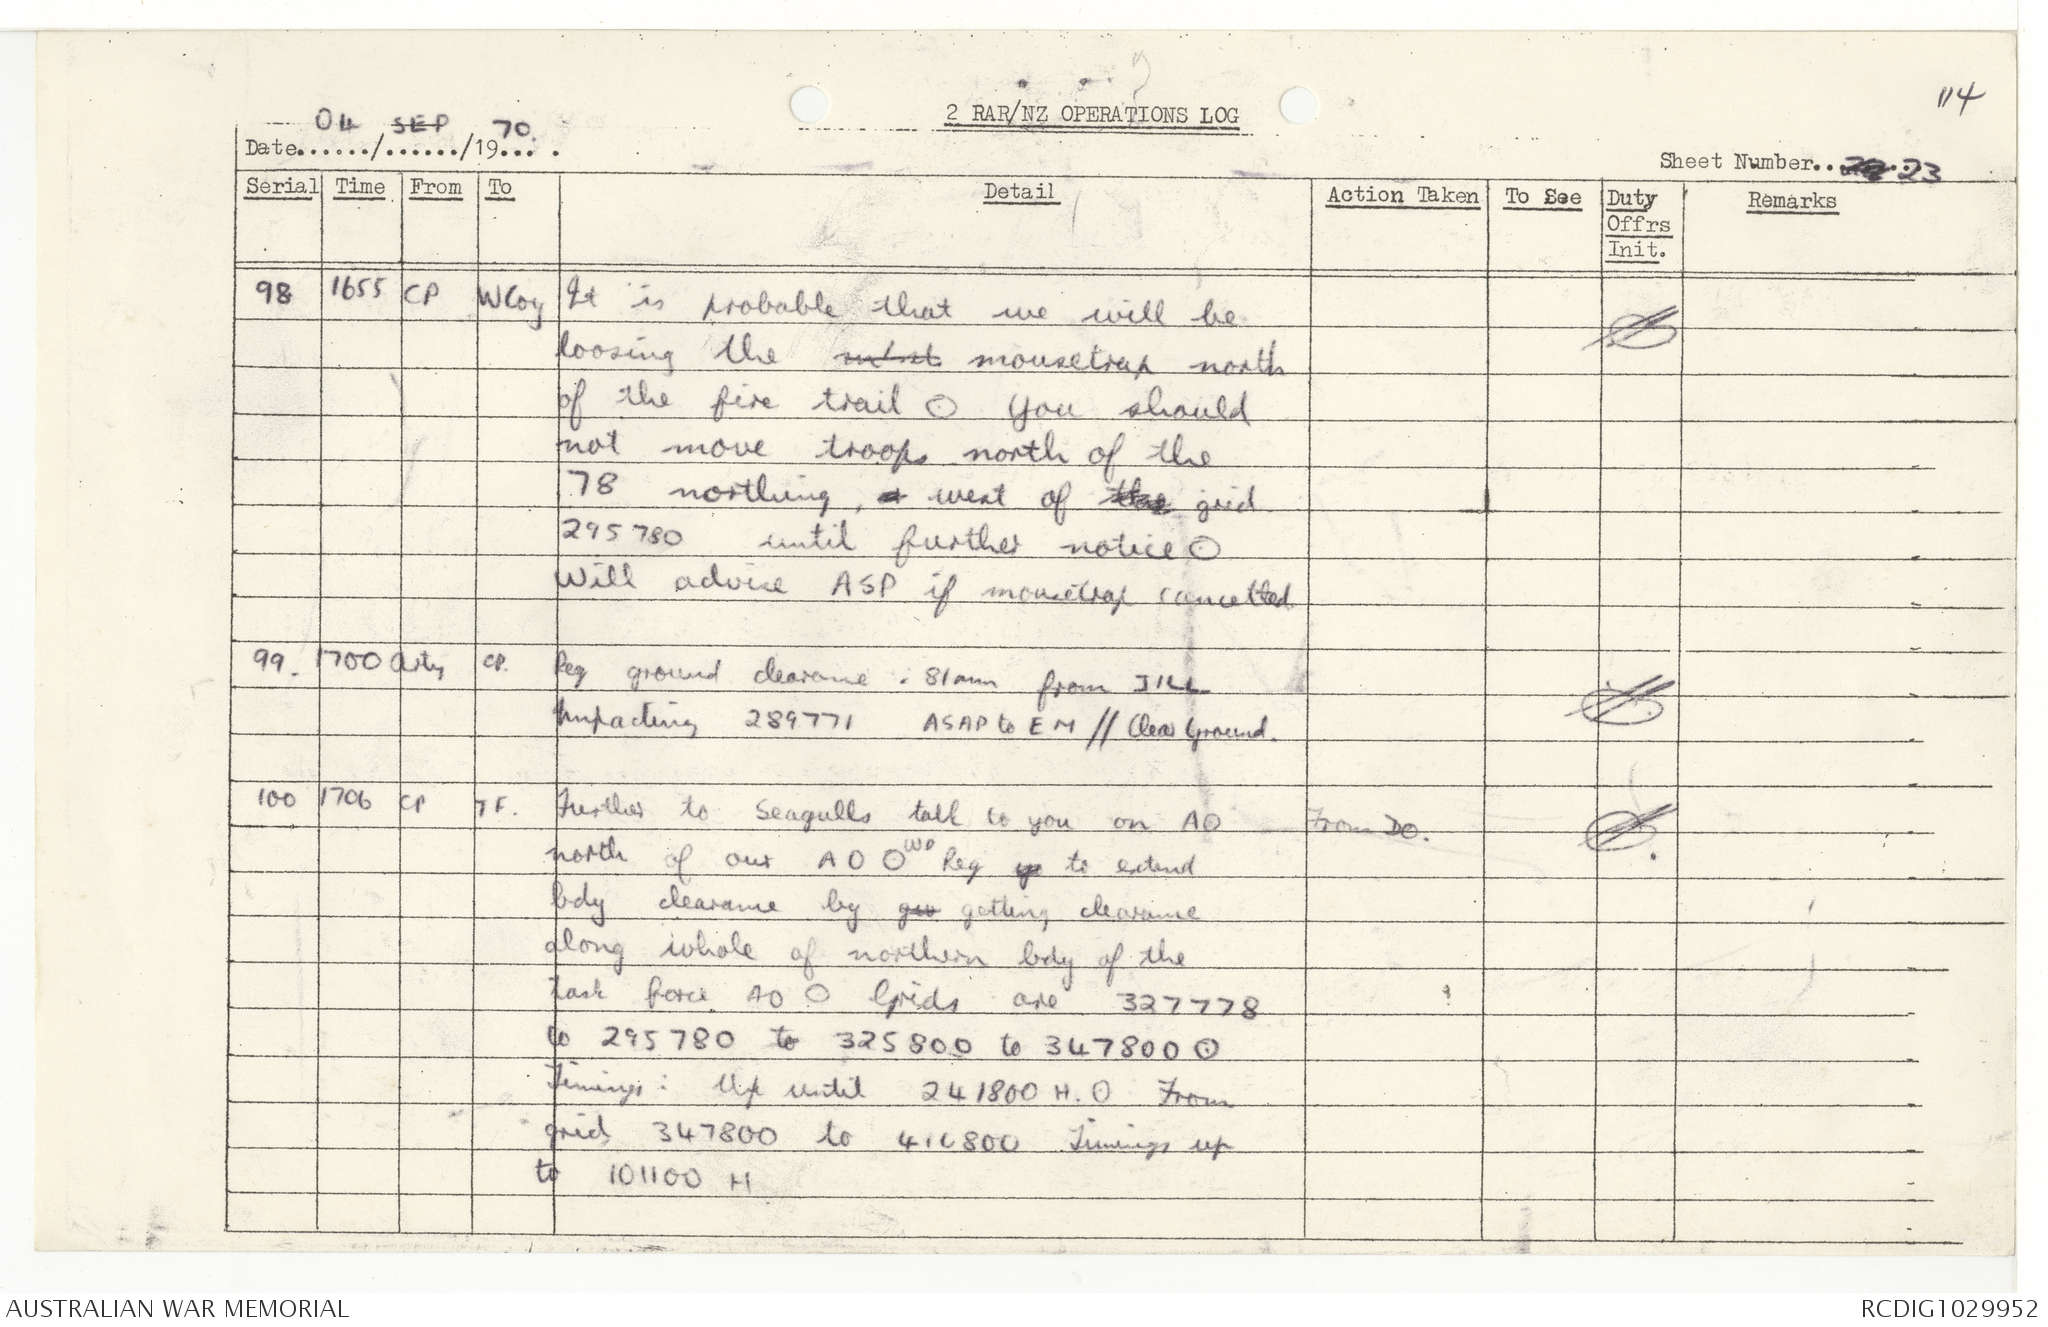 114
2 RAR/NZ OPERATIONS LOG
Date 04 / SEP /1970.
Sheet Number 23
Serial Time From To Detail Action Taken To See Duty Offrs Init. Remarks
98 1655 CP WCoy It is probable that we will be
loosing the mousetrap north
of the fire trail ⊙ You should
not move troops north of the
78 northing, west of grid
295780 until further notice ⊙
Will advise ASP if mousetrap cancelled
99. 1700 Arty CP. Req ground clearance : 81mm from JILL
Impacting 289771 ASAP to EM // Clear Ground.
100 1706 CP TF. Further to Seagulls talk to you on AO From DO.
north of our AO O WD Req to extend
bdy clearance by getting clearance
along whole of northern bdy of the
task force AO O Grids are 327778
to 295780 to 325800 to 347800 ⊙
Timings: Up until 241800 H. O From
grid 347800 to 410800 Timings up
to 101100 H
AUSTRALIAN WAR MEMORIAL
RCDIG1029952